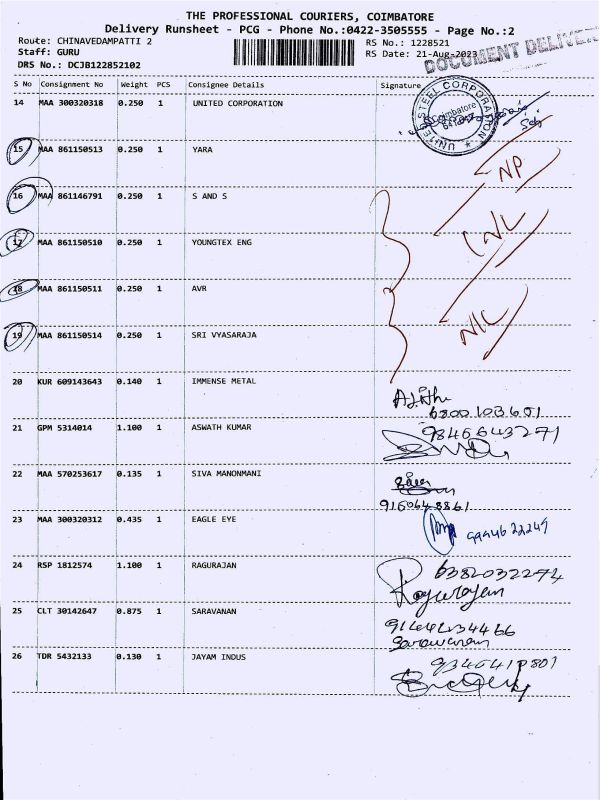 THE PROFESSIONAL COURIERS, COIMBATORE
Delivery Runsheet - PCG - Phone No.:0422-3505555 - Page No.:2
Route: CHINAVEDAMPATTI 2
Staff: GURU
DRS No.: DCJB122852102
RS No.: 1228521
RS Date: 21-Aug-2023
DOCUMENT DELIVER
S No Consignment No Weight PCS Consignee Details Signature
14 MAA 300320318 0.250 1 UNITED CORPORATION
UNITED STEEL CORPORATION
Coimbatore
15 MAA 861150513 0.250 1 YARA
NP
16 MAA 861146791 0.250 1 S AND S
17 MAA 861150510 0.250 1 YOUNGTEX ENG
18 MAA 861150511 0.250 1 AVR
19 MAA 861150514 0.250 1 SRI VYASARAJA
N/C
20 KUR 609143643 0.140 1 IMMENSE METAL
6800103601
21 GPM 5314014 1.100 1 ASWATH KUMAR
9846643271
22 MAA 570253617 0.135 1 SIVA MANONMANI
9160648861
23 MAA 300320312 0.435 1 EAGLE EYE
9994622249
24 RSP 1812574 1.100 1 RAGURAJAN
6382032274
Ragurajan
25 CLT 30142647 0.875 1 SARAVANAN
Saravanan
26 TDR 5432133 0.130 1 JAYAM INDUS